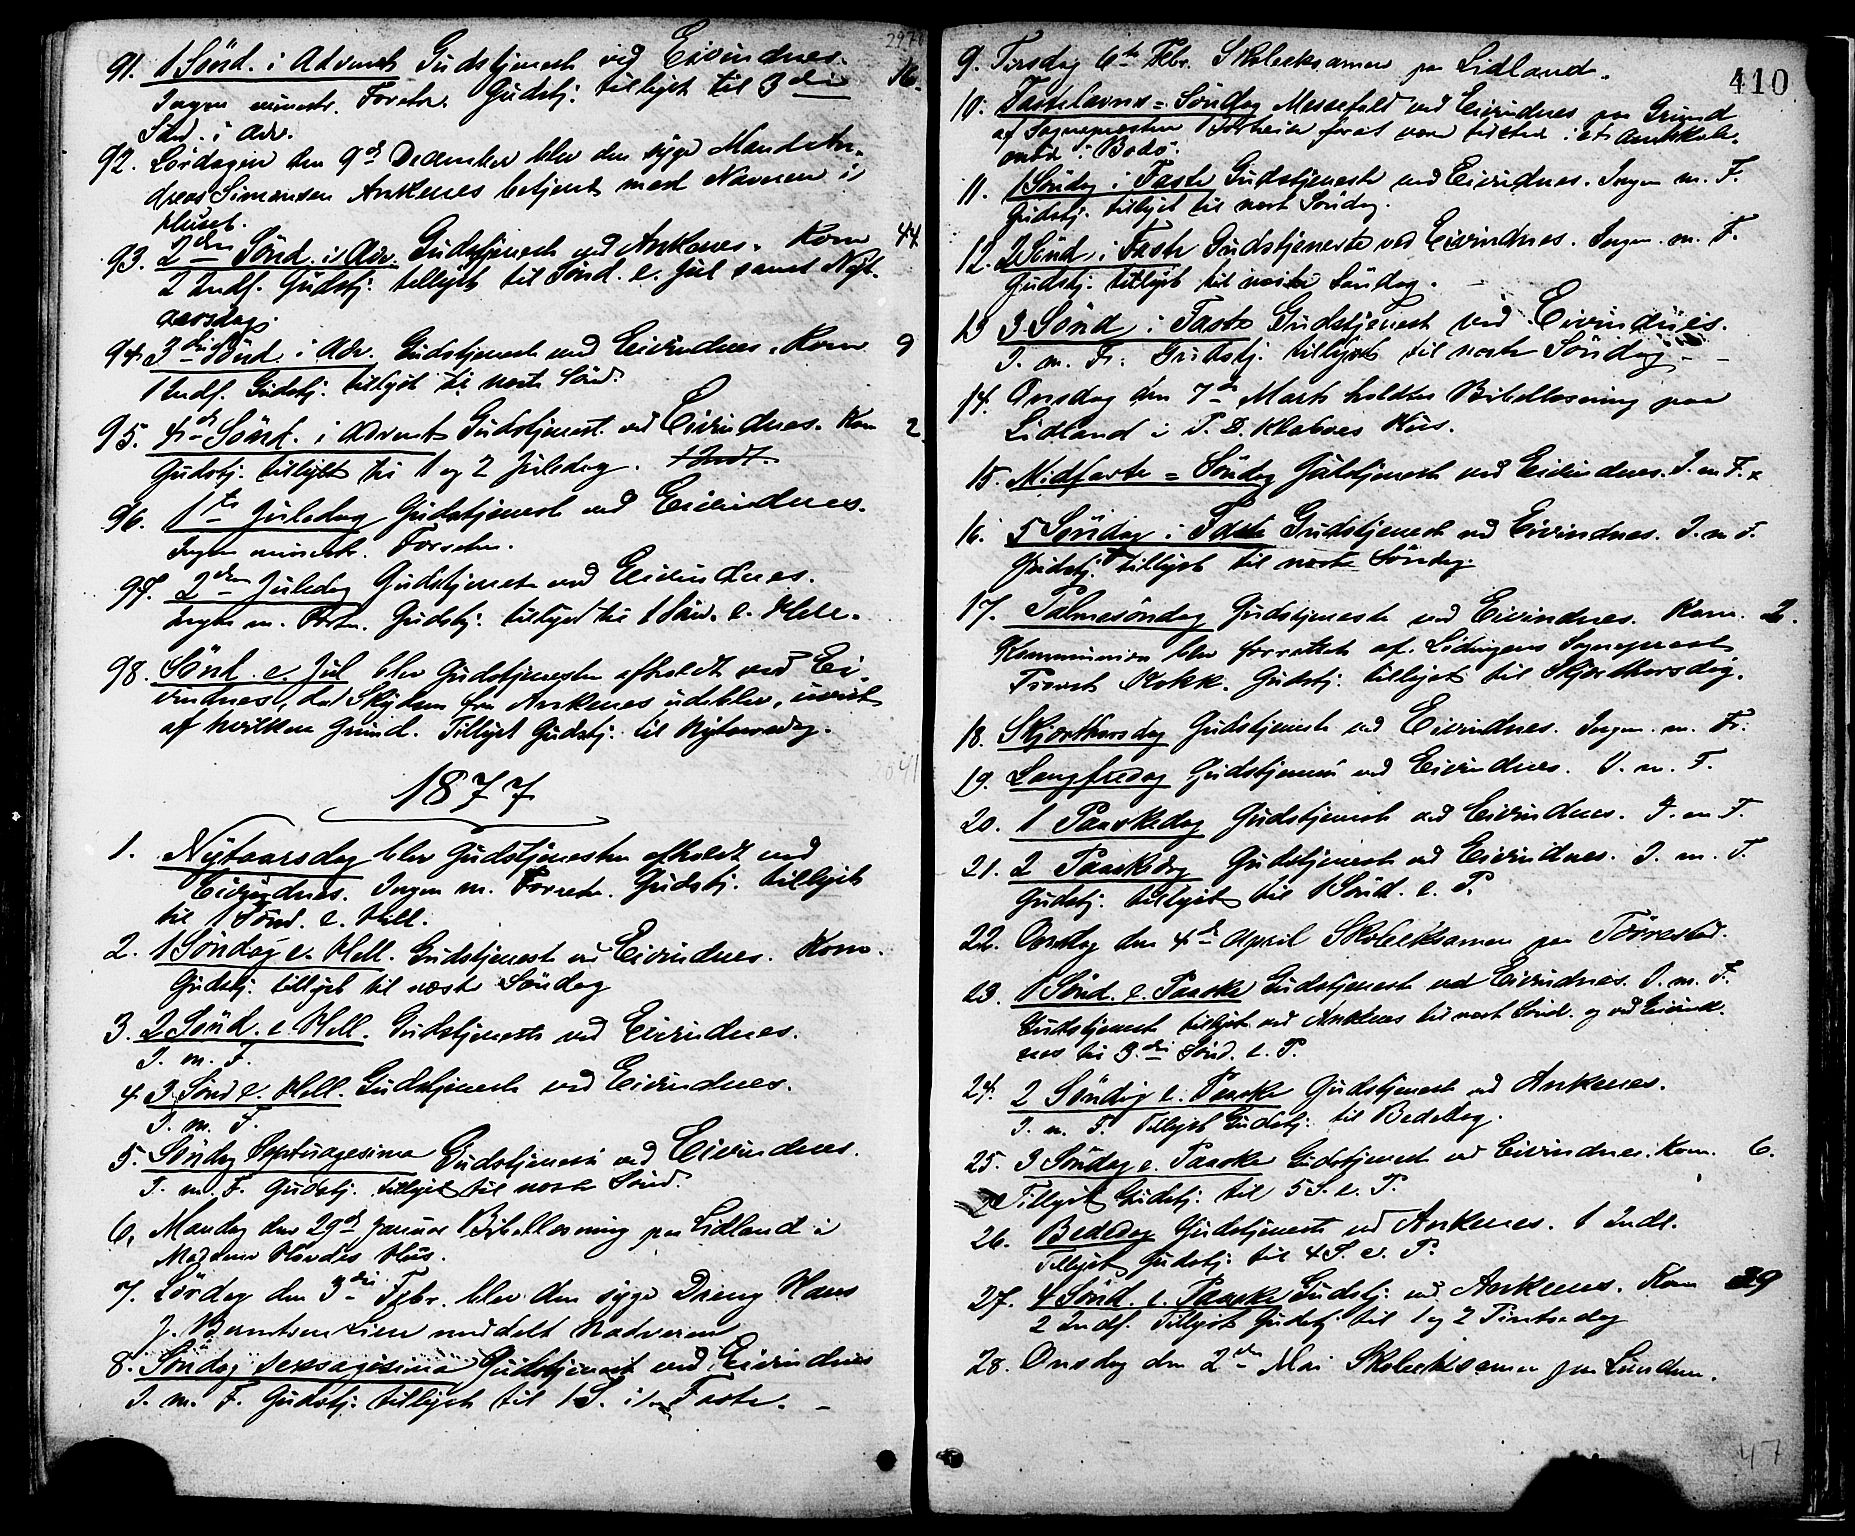 91. 1 Sönd. i Advent Gudstjeneste ved Eivindnes. 16.
Ingen minestr. Forretn. Gudstj. tillyst til 3die
Sönd. i Adv.
92. Lördagen den 9de December blev den syge Mand An-
dreas Simonsen Ankenes betjent med Navneren i
Huset.
93. 2den Sönd. i Adv. Gudstjenest ved Ankenes. Kom 44
2 Indl. Gudstj. tillyst til Sönd. e. Jul samt Nyt-
aarsdag.
94. 3die Sönd. i Adv. Gudstjenest ved Eivindnes. Kom 9
1 Indl. Gudstj. tillyst til næste Sönd.
95. 4de Sönd. i Advent Gudstjenest ved Eivindnes. Kom 2.
Gudstj. tillyst til 1 og 2 Juledag. 1 Indl.
96. 1te Juledag Gudstjenest ved Eivindnes.
Ingen minestr. Forretn.
97. 2den Juledag Gudstjeneste ved Eivindnes.
Ingen m. Fortn. Gudstj. tillyst til 1 Sönd. e. Hell.
98. Sönd. e. Jul blev Gudstjenesten afholdt ved Ei-
vindnes, da Skydsen fra Ankenes udeblev, uvist
af hvilken Grund. Tillyst Gudstj. til Nytaarsdag.
1877
1. Nytaarsdag blev Gudstjenesten afholdt ved
Eivindnes. Ingen m. Forretn. Gudstj. tillyst
til 1 Sönd. e. Hell.
2. 1 Söndag e. Hell. Gudstjeneste ved Eivindnes. Kom.
Gudstj. tillyst til næste Söndag
3. 2 Sönd. e. Hell. Gudstjeneste ved Eivindnes.
I. m. F.
4. 3 Sönd e. Hell. Gudstjenest ved Eivindnes.
I. m. F.
5. Söndag Septuagesima Gudstjenest ved Eivindnes.
I. m. F. Gudstj. tillyst til næste Sönd.
6. Mandag den 29de Januar Bibellæsning paa Lidland i
Madame Hus.
7. Lördag den 3die Febr. blev den syge Dreng Hans
J. Berntsen Lien meddelt Nadveren
8. Söndag Sexsagesima Gudstjenest ved Eivindnes
I. m. F. Gudstj. tillyst til 1 S. i Faste.
410
9. Tirsdag 6te Febr. Skoleeksamen paa Lidland.
10. Fastelavns=Söndag Messefald ved Eivindnes paa Grund
af Sognepræsten Forheia forat være tilstede i et Amtskole-
möde i Bodö.
11. 1 Söndag i Faste Gudstjeneste ved Eivindnes. Ingen m. F.
Gudstj. tillyst til næst Söndag.
12. 2 Sönd. i Faste Gudstjeneste ved Eivindnes. Ingen m. F.
Gudstj. tillyst til næste Söndag.
13 3 Sönd. i Faste Gudstjenest ved Eivindnes.
I. m. Fr. Gudstj. tillyst til næste Söndag
14. Onsdag den 7de Marts holdtes Bibellæsning paa
Lidland i P. D. Klaboes Hus.
15. Midfaste=Söndag Gudstjenest ved Eivindnes. I. m F.
16. 5 Söndag i Faste Gudstjenest ved Eivindnes. I. m F.
Gudstj. tillyst til næste Söndag.
17. Palmesöndag Gudstjeneste ved Eivindnes. Kom. 2.
Kommunion blev forrettet af Lödingens Sognepræst
Provst Kokk. Gudstj. tillyst til Skjærthorsdag.
18. Skjærthorsdag Gudstjeneste ved Eivindnes. Ingen m. Fr.
19. Langfredag Gudstjenest ved Eivindnes. I. m. F.
20. 1 Paaskedag Gudstjenest ved Eivindnes. I. m F.
21. 2 Paaskdag Gudstjenest ved Eivindnes. I. m. F.
Gudstj. tillyst til 1 Sönd. e. P.
22. Onsdag den 4de April Skoleeksamen paa Törrestad.
23. 1 Sönd. e. Paaske Gudstjenest ved Eivindnes. I. m. F.
Gudstjenest tillyst ved Ankenes til næst Sönd. og ved Eivind-
nes til 3die Sönd. e. P.
24. 2 Söndag e. Paaske Gudstjenest ved Ankenes.
I. m. F. Tillyst Gudstj. til Bededag.
25. 3 Söndag e. Paaske Gudstjenest ved Eivindnes. Kom. 6.
Tillyst Gudstj. til 5 S. e. P.
26. Bededag Gudstjeneste ved Ankenes. 1 Indl.
Tillyst Gudstj. til 4 S. e. P.
27. 4 Sönd. e. Paaske Gudstj. ved Ankenes. Kom 39
2 Indl. Tillyst Gudstj til 1 og 2 Pintsedag
28. Onsdag den 2den Mai Skoleeksamen paa Lunden.
47